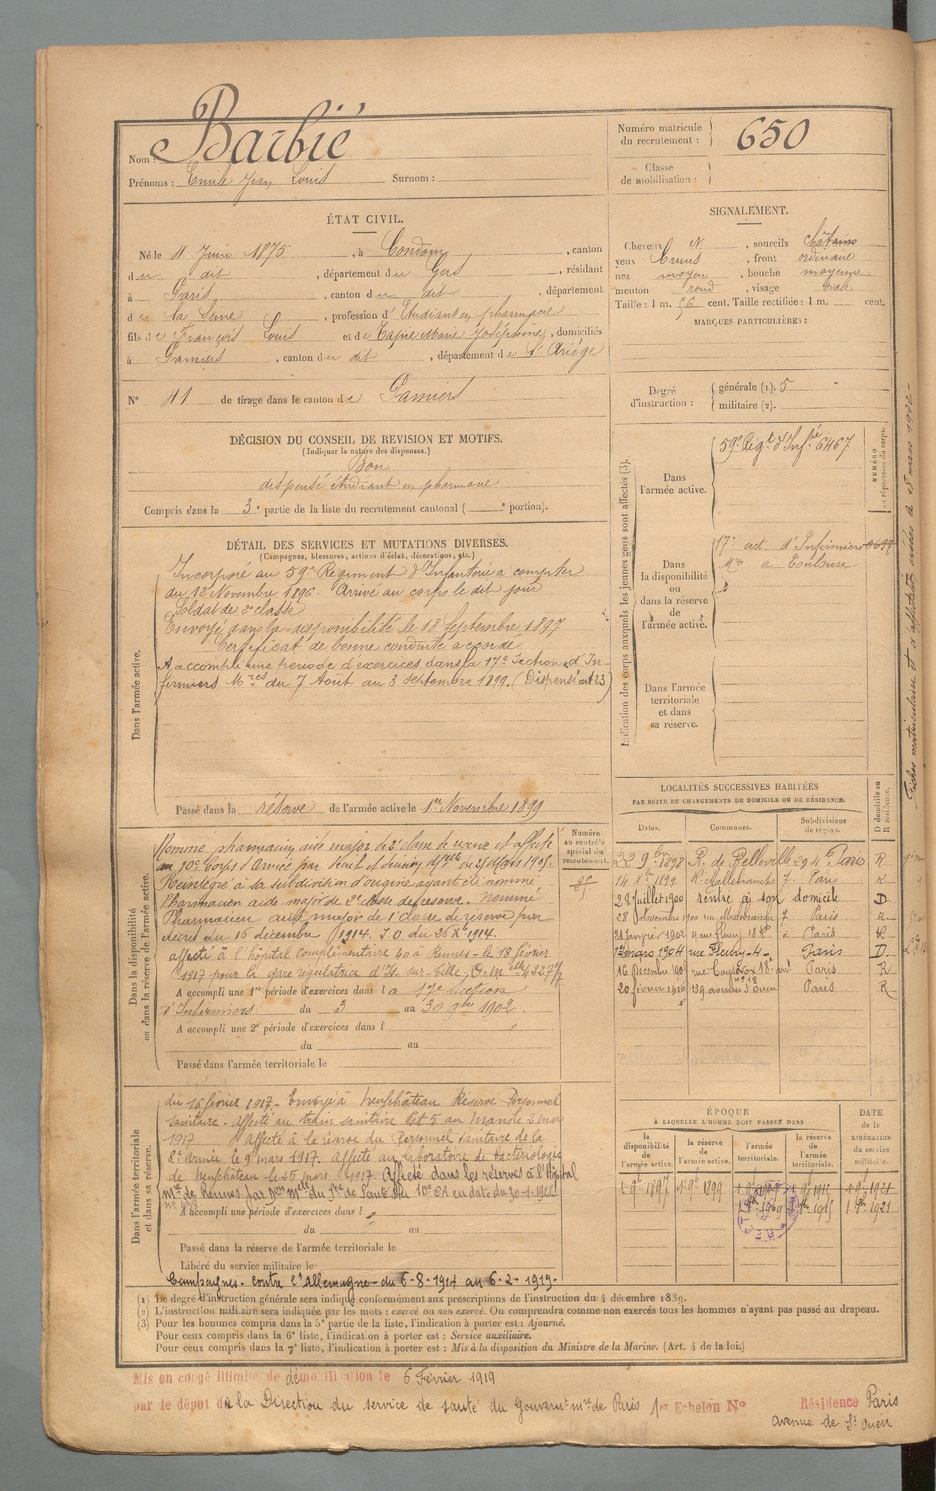 Nom : Barbié
Prénoms : Emile Jean Louis Surnom :
Numéro matricule du recrutement : 650
Classe de mobilisation :
ÉTAT CIVIL.
Né le 11 Juin 1875, à Condom, canton
du dit, département du Gers, résidant
à Paris, canton du dit, département
de la Seine, profession d'Etudiant en pharmacie
fils de François Louis et de Marie Joséphine, domiciliés
à Pamiers, canton du dit, département de l'Ariège
N° 41 de tirage dans le canton de Pamiers
SIGNALEMENT.
Cheveux N, sourcils châtains
yeux bruns, front ordinaire
nez moyen, bouche moyenne
menton rond, visage ovale
Taille : 1 m. 56 cent. Taille rectifiée : 1 m. cent.
MARQUES PARTICULIÈRES :
Degré d'instruction : générale (1). 5
militaire (2).
DÉCISION DU CONSEIL DE REVISION ET MOTIFS.
(Indiquer la nature des dispenses.)
Bon
dispensé étudiant en pharmacie
Compris dans la 3e partie de la liste du recrutement cantonal ( e portion).
DÉTAIL DES SERVICES ET MUTATIONS DIVERSES.
(Campagnes, blessures, actions d'éclat, décorations, etc.)
Dans l'armée active.
Incorporé au 59e Régiment d'Infanterie à compter
du 12 Novembre 1896. Arrivé au corps le dit jour
Soldat de 2e classe
Envoyé dans la disponibilité le 18 Septembre 1897
Certificat de bonne conduite accordé
A accompli une période d'exercices dans la 17e Section d'In-
firmiers Mres du 7 Août au 3 Septembre 1899. (Dispensé art 23)
Passé dans la réserve de l'armée active le 1er Novembre 1899
Indication des corps auxquels les jeunes gens sont affectés (3).
NUMÉRO au répertoire du corps.
Dans l'armée active.
59e Régt d'Infie 6467
Dans la disponibilité ou dans la réserve de l'armée active.
17e sect. d'Infirmiers
Mres à Toulouse
Dans l'armée territoriale et dans sa réserve.
Fiches matriculaire et d'affectation
Dans la disponibilité ou dans la réserve de l'armée active.
Numéro au contrôle spécial du recrutement.
Nommé pharmacien aide major de 2e classe de réserve et affecté
au 10e Corps d'Armée par
Réintégré à sa subdivision d'origine ayant été nommé
Pharmacien aide major de 2e classe de réserve. Nommé
Pharmacien aide major de 1e classe de réserve par
décret du 16 décembre 1914. J.O du 26 Xbre 1914.
affecté à l'hôpital complémentaire 40 à Rennes - le 18 février
1917 pour la gare régulatrice d'Is-sur-Tille
A accompli une 1re période d'exercices dans la 17e Section
d'Infirmiers du 3 au 30 9bre 1902.
A accompli une 2e période d'exercices dans l
du au
Passé dans l'armée territoriale le
LOCALITÉS SUCCESSIVES HABITÉES
PAR SUITE DE CHANGEMENTS DE DOMICILE OU DE RÉSIDENCE.
Dates. Communes. Subdivisions de région. D domicile ou R résidence.
22 9bre 1898 R. de Belleville 294 Paris R
14 Xbre 1899 R. Mallebranche 7 Paris R
28 juillet 1900 rentré à son domicile D
28 Novembre 1900 rue Malebranche 7 Paris R
21 Janvier 1902 4 rue Fleury 18e Paris R
1er mars 1904 rue Fleury-4- Paris D
16 Décembre rue 18e arrt Paris R
20 février 1910 139 avenue St Ouen Paris R
Dans l'armée territoriale et dans sa réserve.
du 16 février 1917 - Envoyé à Neufchâteau Réserve Personnel
sanitaire - affecté au train sanitaire
1917 affecté à la réserve du Personnel sanitaire de la
8e armée le 9 mars 1917. Affecté au laboratoire de bactériologie
de Neufchâteau le 25 mars 1917 Affecté dans les réserves à l'Hôpital
mre de Rennes par
A accompli une période d'exercices dans l
du au
Passé dans la réserve de l'armée territoriale le
Libéré du service militaire le
Campagnes - contre l'Allemagne - du 6-8-1914 au 6-2-1919.
ÉPOQUE
À LAQUELLE L'HOMME DOIT PASSER DANS
la disponibilité de l'armée active. la réserve de l'armée active. l'armée territoriale. la réserve de l'armée territoriale.
DATE de la LIBÉRATION du service militaire.
1 9bre 1897 1 9bre 1899
(1) Le degré d'instruction générale sera indiqué conformément aux prescriptions de l'instruction du 4 décembre 1889.
(2) L'instruction militaire sera indiquée par les mots : exercé ou non exercé. On comprendra comme non exercés tous les hommes n'ayant pas passé au drapeau.
(3) Pour les hommes compris dans la 5e partie de la liste, l'indication à porter est : Ajourné.
Pour ceux compris dans la 6e liste, l'indication à porter est : Service auxiliaire.
Pour ceux compris dans la 7e liste, l'indication à porter est : Mis à la disposition du Ministre de la Marine. (Art. 4 de la loi.)
Mis en congé illimité de démobilisation le 6 Février 1919
par le dépôt de la Direction du service de santé du Gouvernt mre de Paris 1er Echelon N° Résidence Paris
avenue de St Ouen